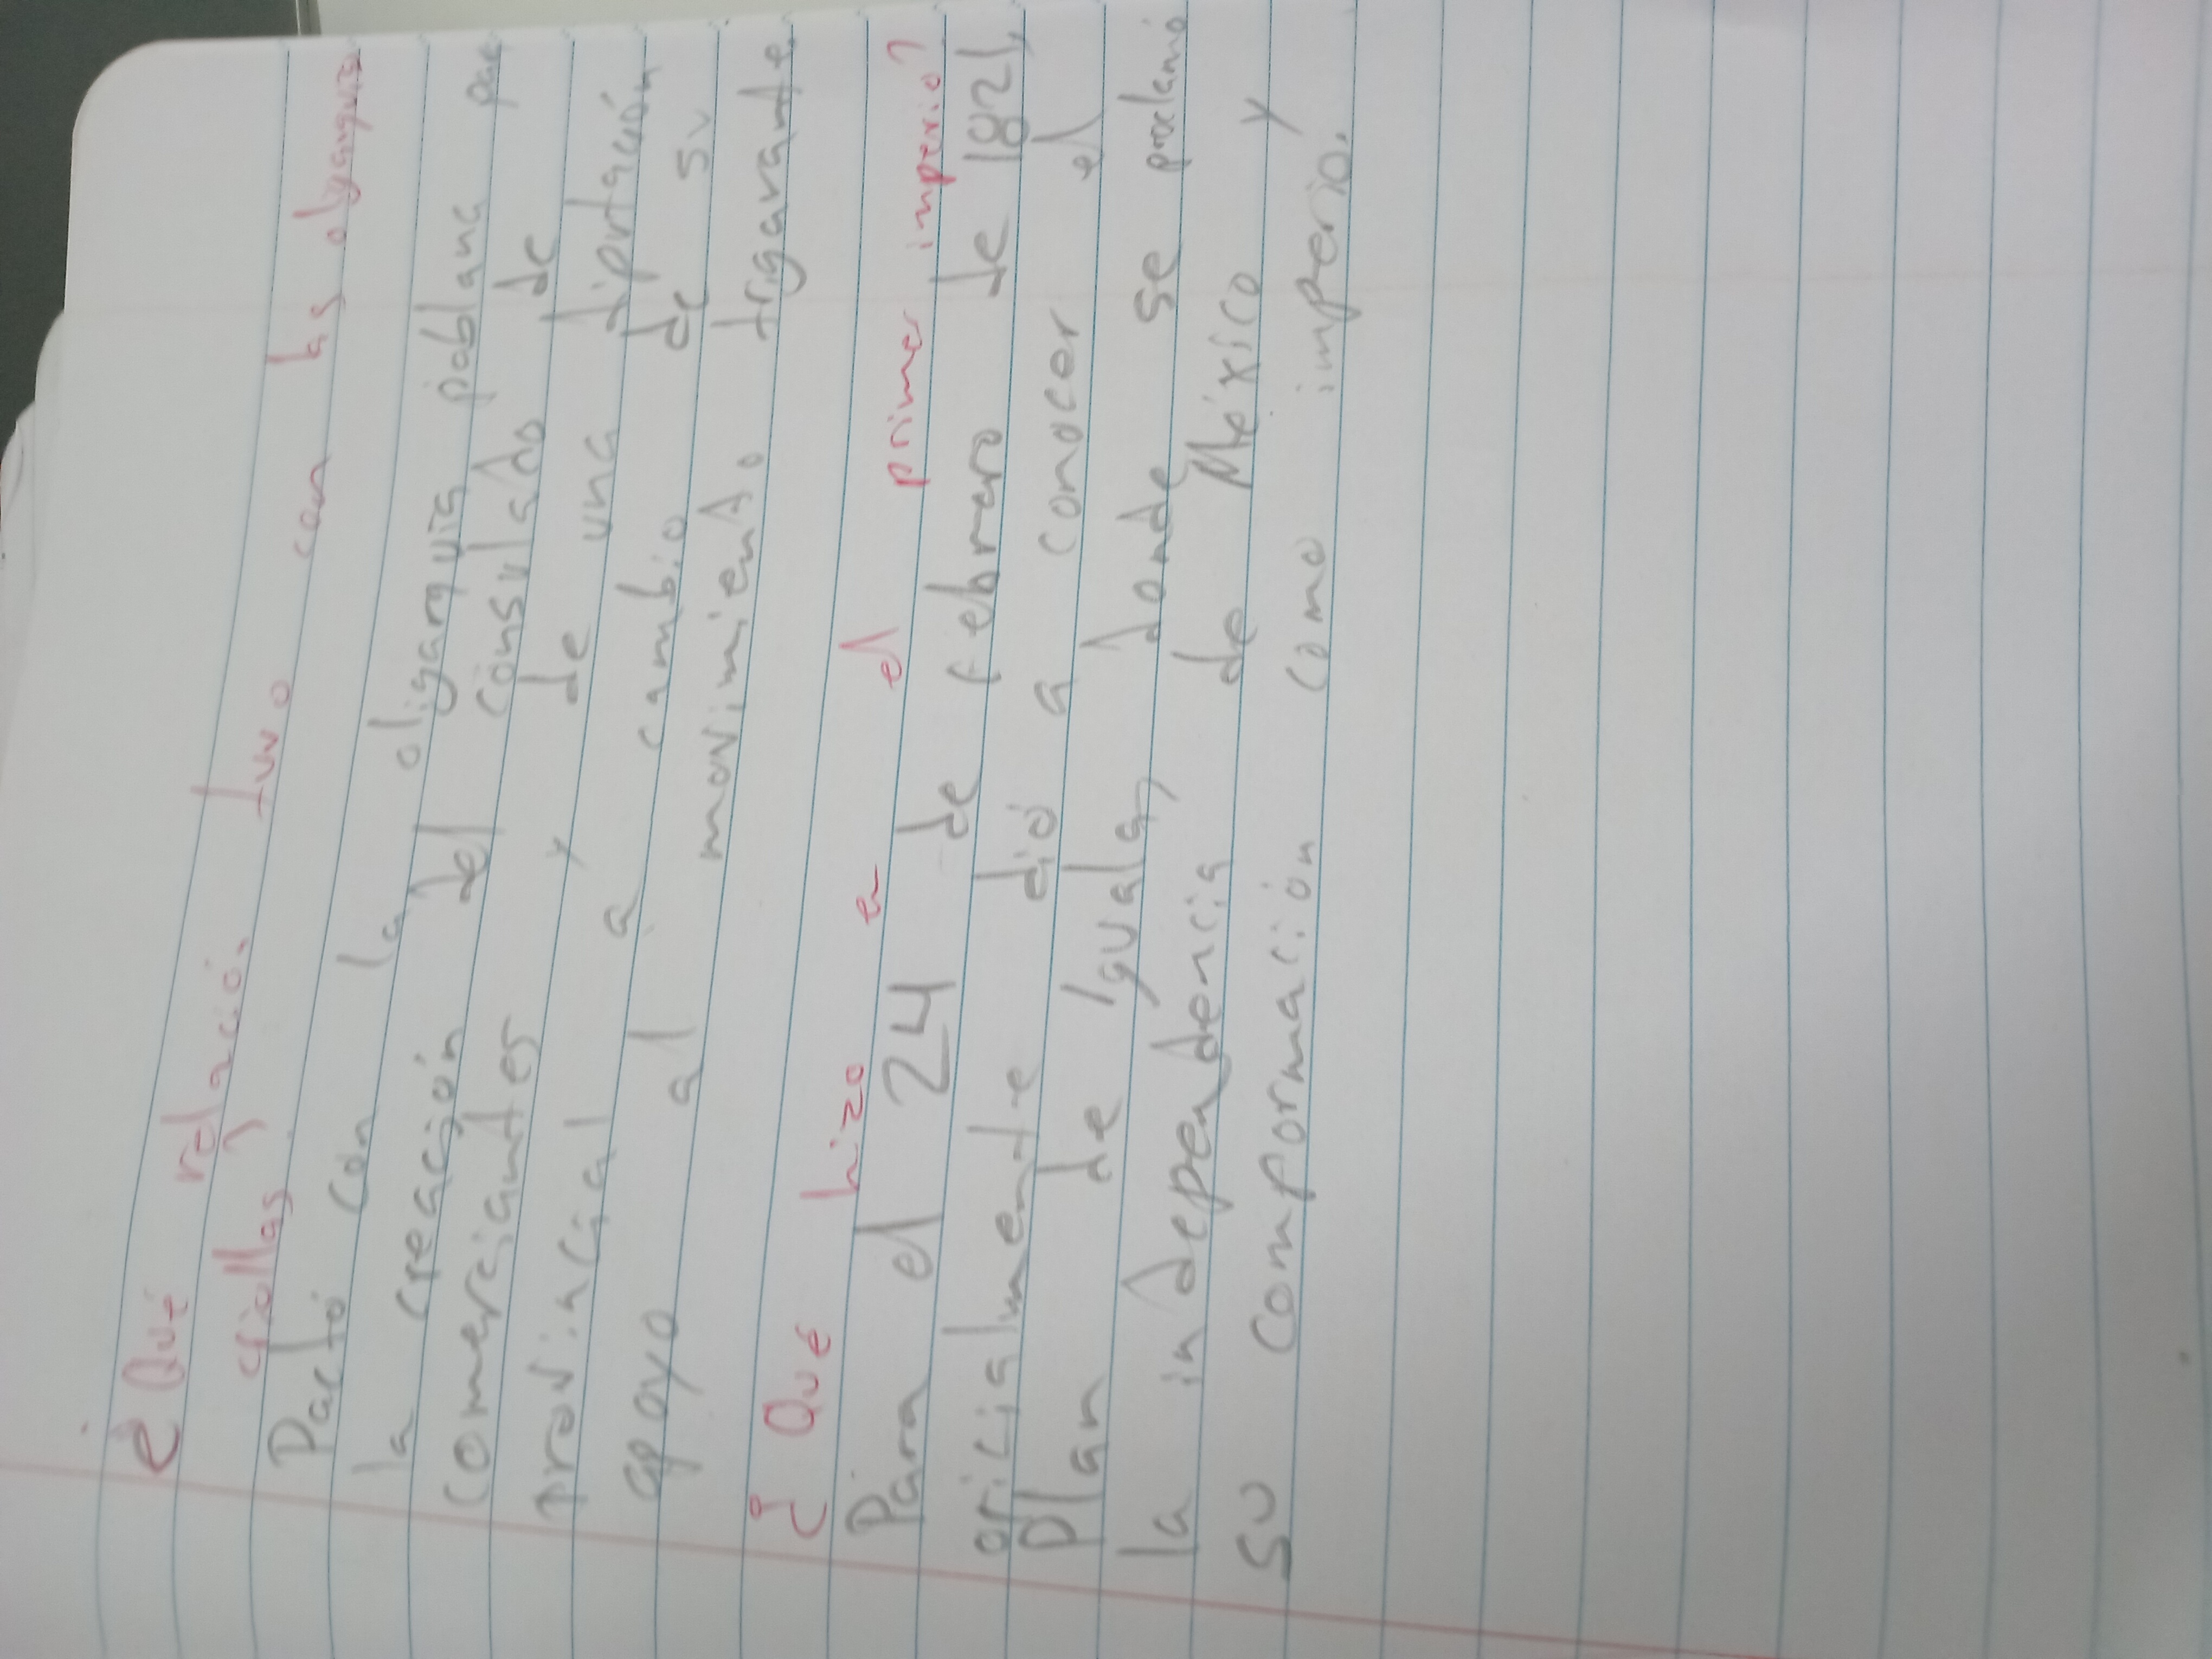 ¿Qué relació. tuvo con las olygarquia
criollas?
Pactó con la oligarquía poblana par
la creación del consulado de
comerciantes y de una diputación
provincial a cambio de su
apoyo al movimiento trigarante.
¿Qué hizo en el primer imperio?
Para el 24 de febrero de 1821,
oficialmente dió a conocer el
Plan de Iguala, donde se proclamó
la independencia de México y
su comformación como imperio.